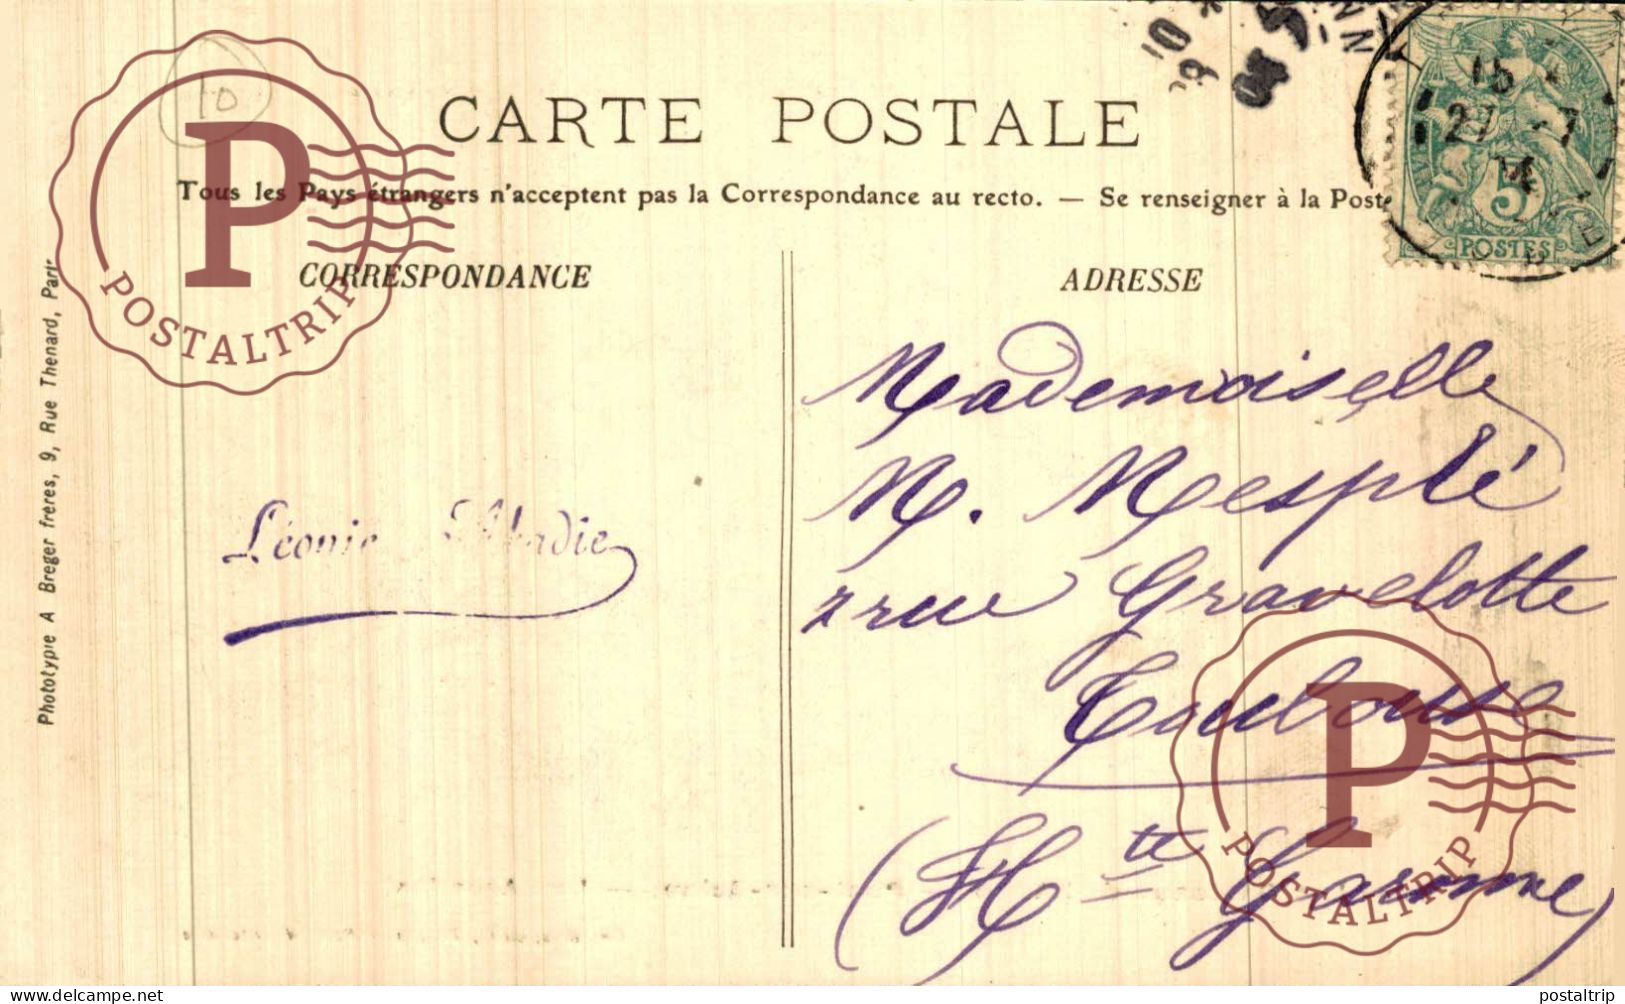 CARTE POSTALE
Tous les Pays étrangers n'acceptent pas la Correspondance au recto. — Se renseigner à la Poste
CORRESPONDANCE
ADRESSE
Léonie Abadie
Mademoiselle
M. Mesplé
2 rue Gravelotte
Toulouse
(Hte Garonne)
Phototypie A Breger frères, 9, Rue Thenard, Paris
10
15
27 -7
14
5
POSTES
P
POSTALTRIP
P
POSTALTRIP
www.delcampe.net
postaltrip